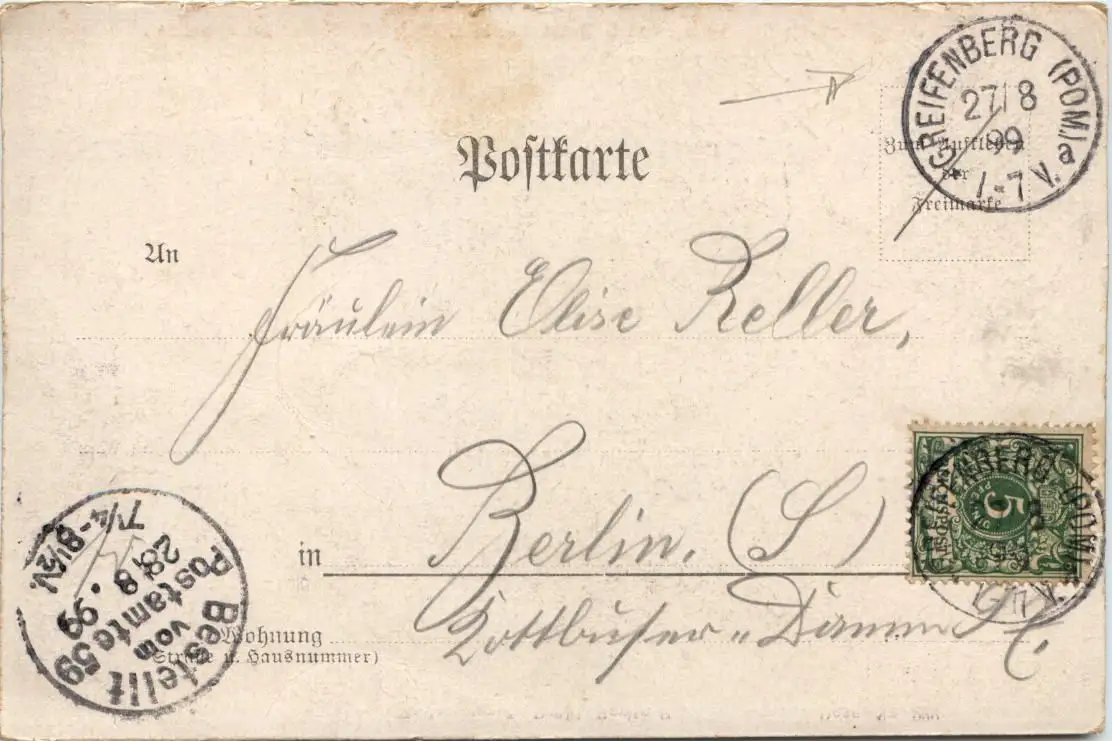 Postkarte
GREIFENBERG (POM.) a
27/8
99
7-7 V.
Zum Aufkleben
der
Freimarke
An
Fräulein Elise Keller,
in Berlin. (S)
Wohnung Kottbuser-Damm
(Straße u. Hausnummer)
GREIFENBERG (POM.)
5
Bestellt
vom
Postamte 59
28.8.99
7¼-8½V.